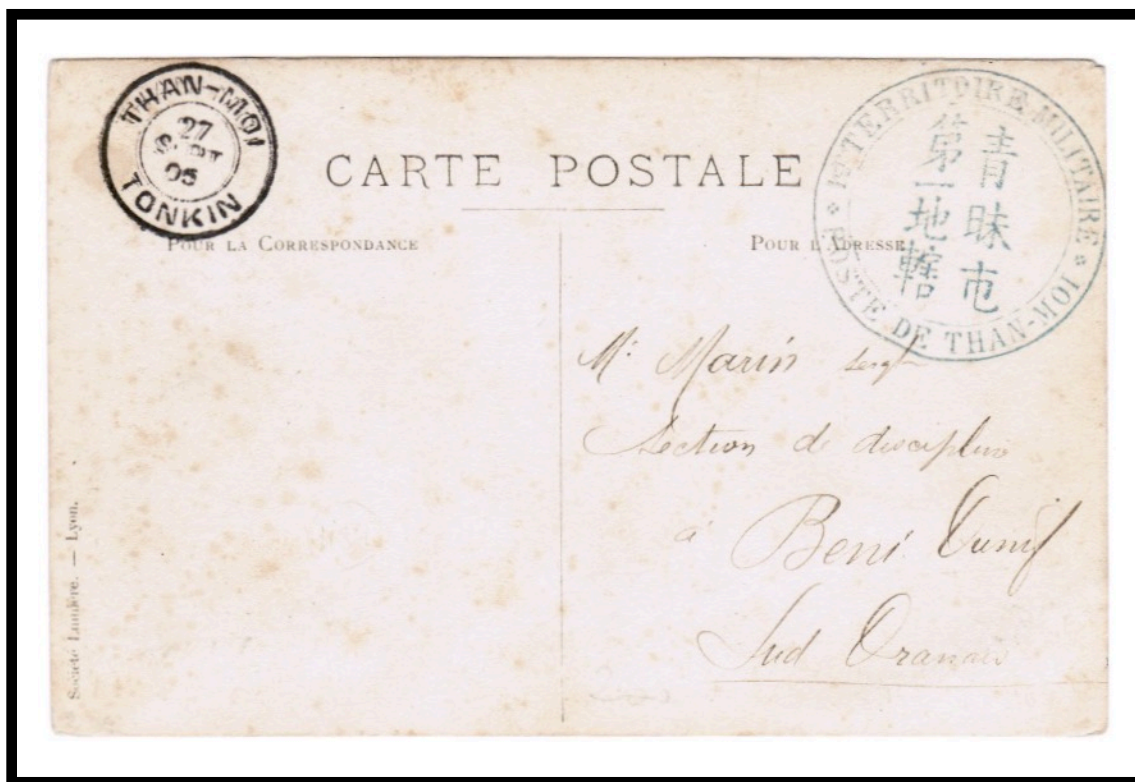 THAN-MOI
27
SEPT
05
TONKIN
CARTE POSTALE
1ER TERRITOIRE MILITAIRE
青眛屯
第一地轄
POSTE DE THAN-MOI
POUR LA CORRESPONDANCE
POUR L'ADRESSE
Mr Marin sergt
Section de discipline
à Beni Ounif
Sud Oranais
Société Lumière. — Lyon.